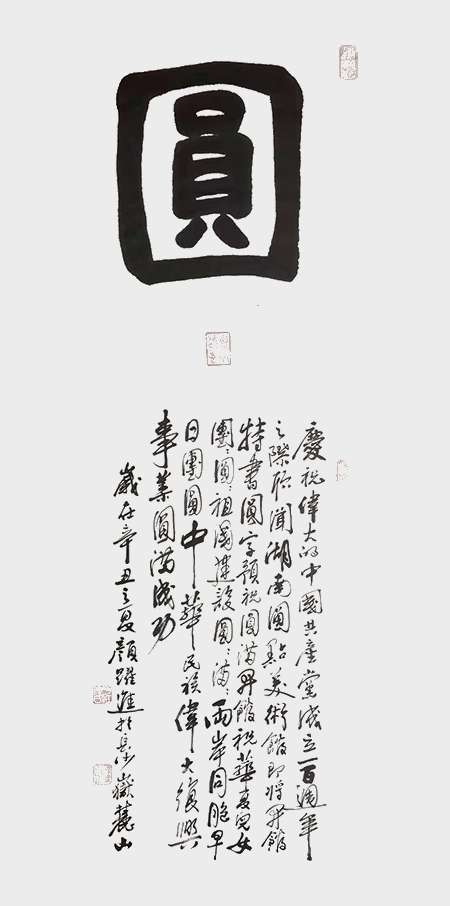 圓
慶祝偉大的中國共產黨成立一百週年
之際欣聞湖南圓點美術館即將開館
特書圓字預祝圓滿開館祝華夏兒女
團〻圓〻祖國建設圓〻滿〻兩岸同胞早
日團圓中華民族偉大復興
事業圓滿成功
歲在辛丑之夏顏躍進於長沙嶽麓山